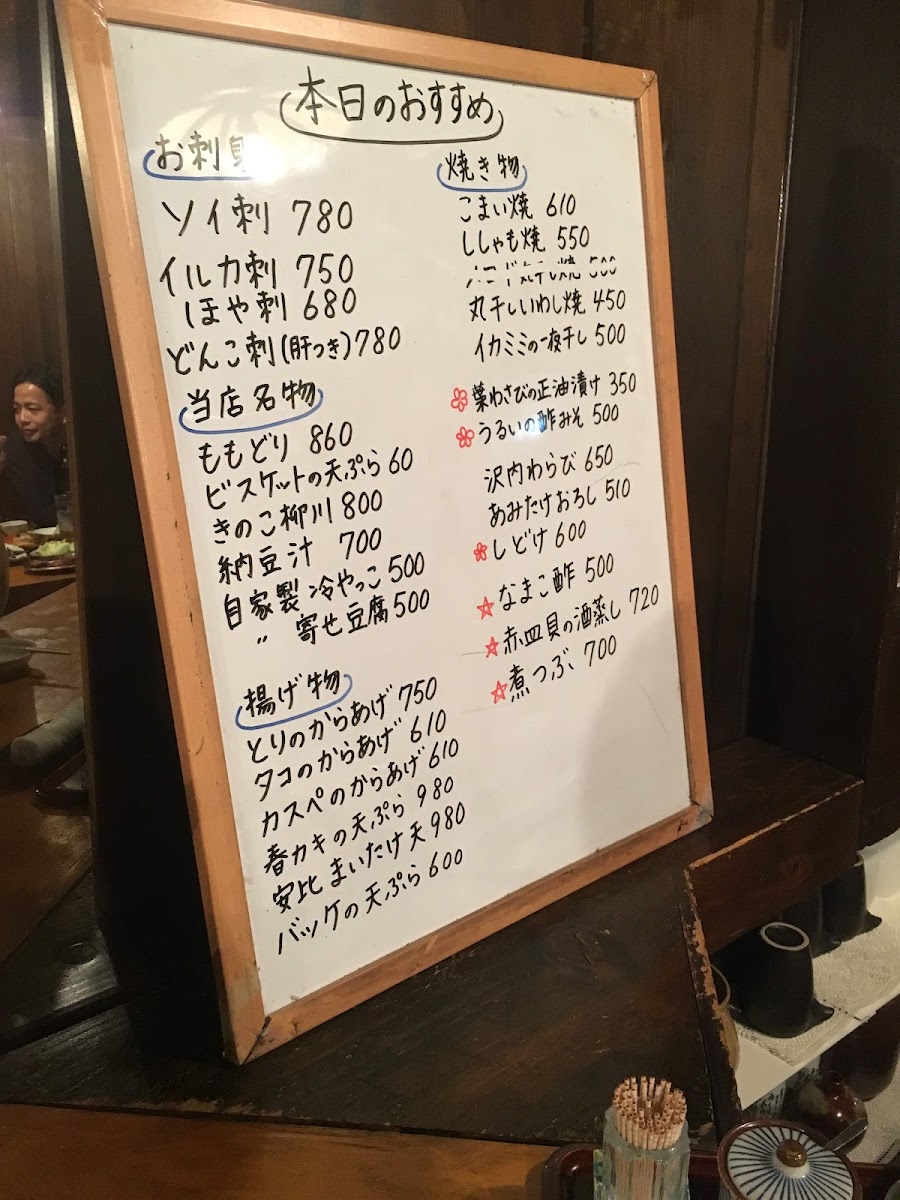 本日のおすすめ
お刺身
ソイ刺 780
イルカ刺 750
ほや刺 680
どんこ刺(肝つき)780
当店名物
ももどり 860
ビスケットの天ぷら 60
きのこ柳川 800
納豆汁 700
自家製 冷やっこ 500
〃 寄せ豆腐 500
揚げ物
とりのからあげ 750
タコのからあげ 610
カスペのからあげ 610
春カキの天ぷら 980
安比まいたけ天 980
バッケの天ぷら 600
焼き物
こまい焼 610
ししゃも焼 550
丸干しいわし焼 450
イカミミの一夜干し 500
葉わさびの正油漬け 350
うるいの酢みそ 500
沢内わらび 650
あみたけおろし 510
しどけ 600
なまこ酢 500
赤皿貝の酒蒸し 720
煮つぶ 700